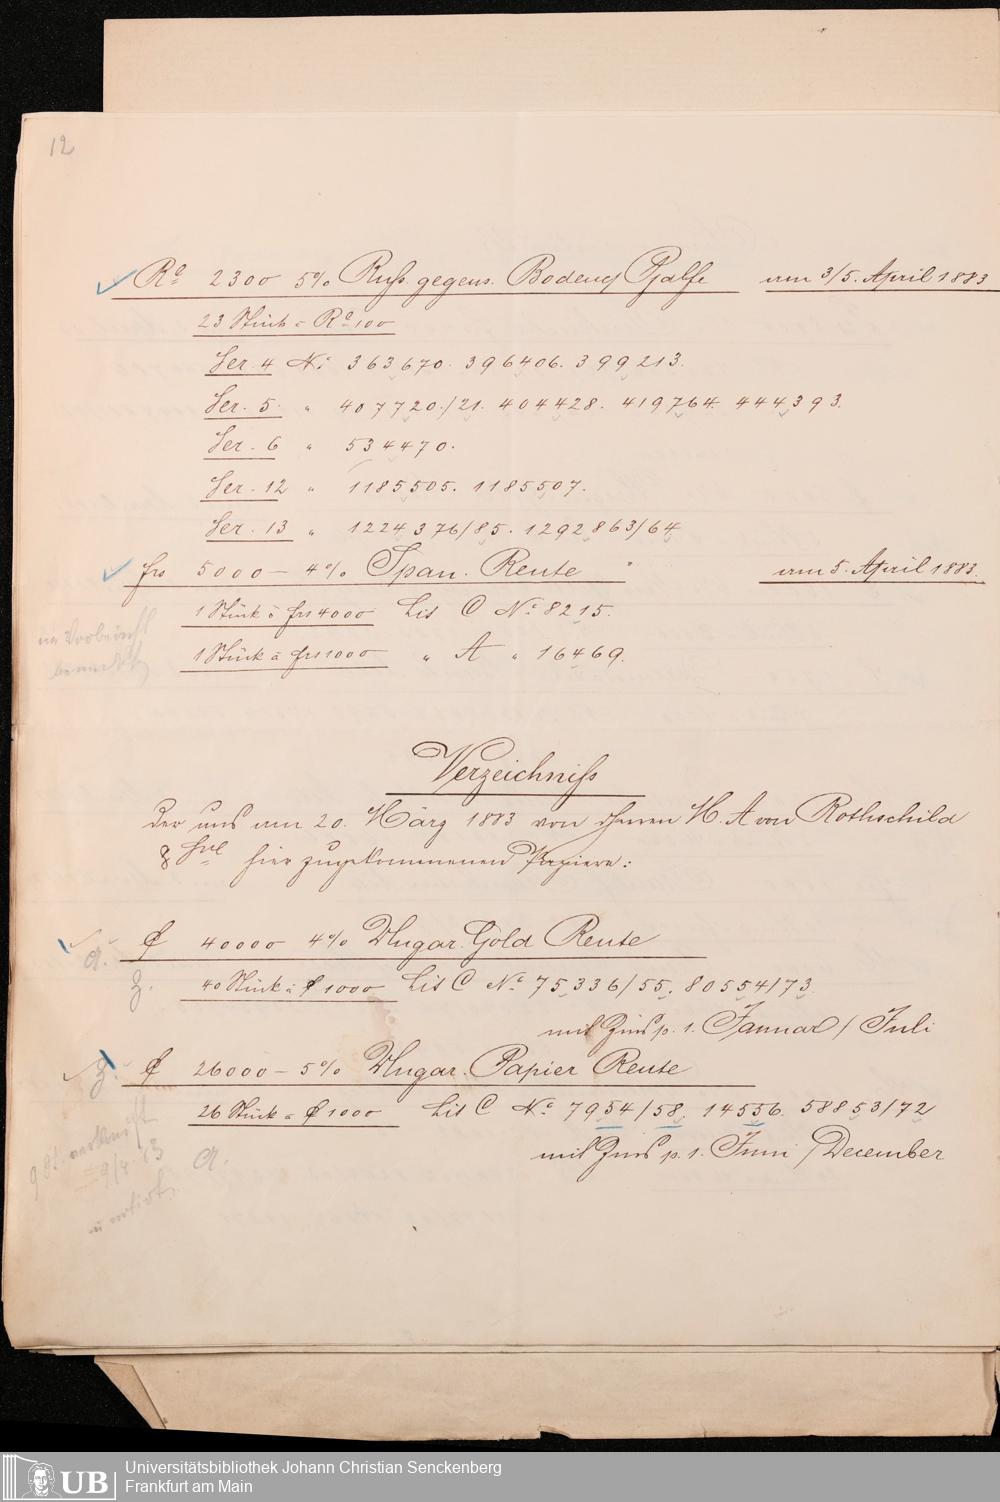 12
Ro 2300 5% Russ. gegens. Bodencr Pfdbfe am 3/5. April 1883
23 Stück à Ro 100
Ser. 4 No 363670. 396406. 399213.
Ser. 5. " 407720./21. 404428. 419764. 444393.
Ser. 6 " 534470.
Ser. 12 " 1185505. 1185507.
Ser. 13 " 1224376/85. 1292863/64.
frs 5000 – 4% Span. Rente " am 5. April 1883.
1 Stück à frs 4000 Lit C No 8215.
1 Stück à frs 1000 " A " 16469.
Verzeichniss
der uns am 20. März 1883 von Herren M. A von Rothschild
& Söhne hier zugekommenen Papiere:
a. f 40000 4% Ungar. Gold Rente
40 Stück à f 1000 Lit C No 75336/55. 80554/73.
mit Zins p. 1. Januar / Juli
f 26000 – 5% Ungar. Papier Rente
26 Stück à f 1000 Lit C No 7954/58. 14556. 58853/72
mit Zins p. 1. Juni / December
a.
UB
Universitätsbibliothek Johann Christian Senckenberg
Frankfurt am Main